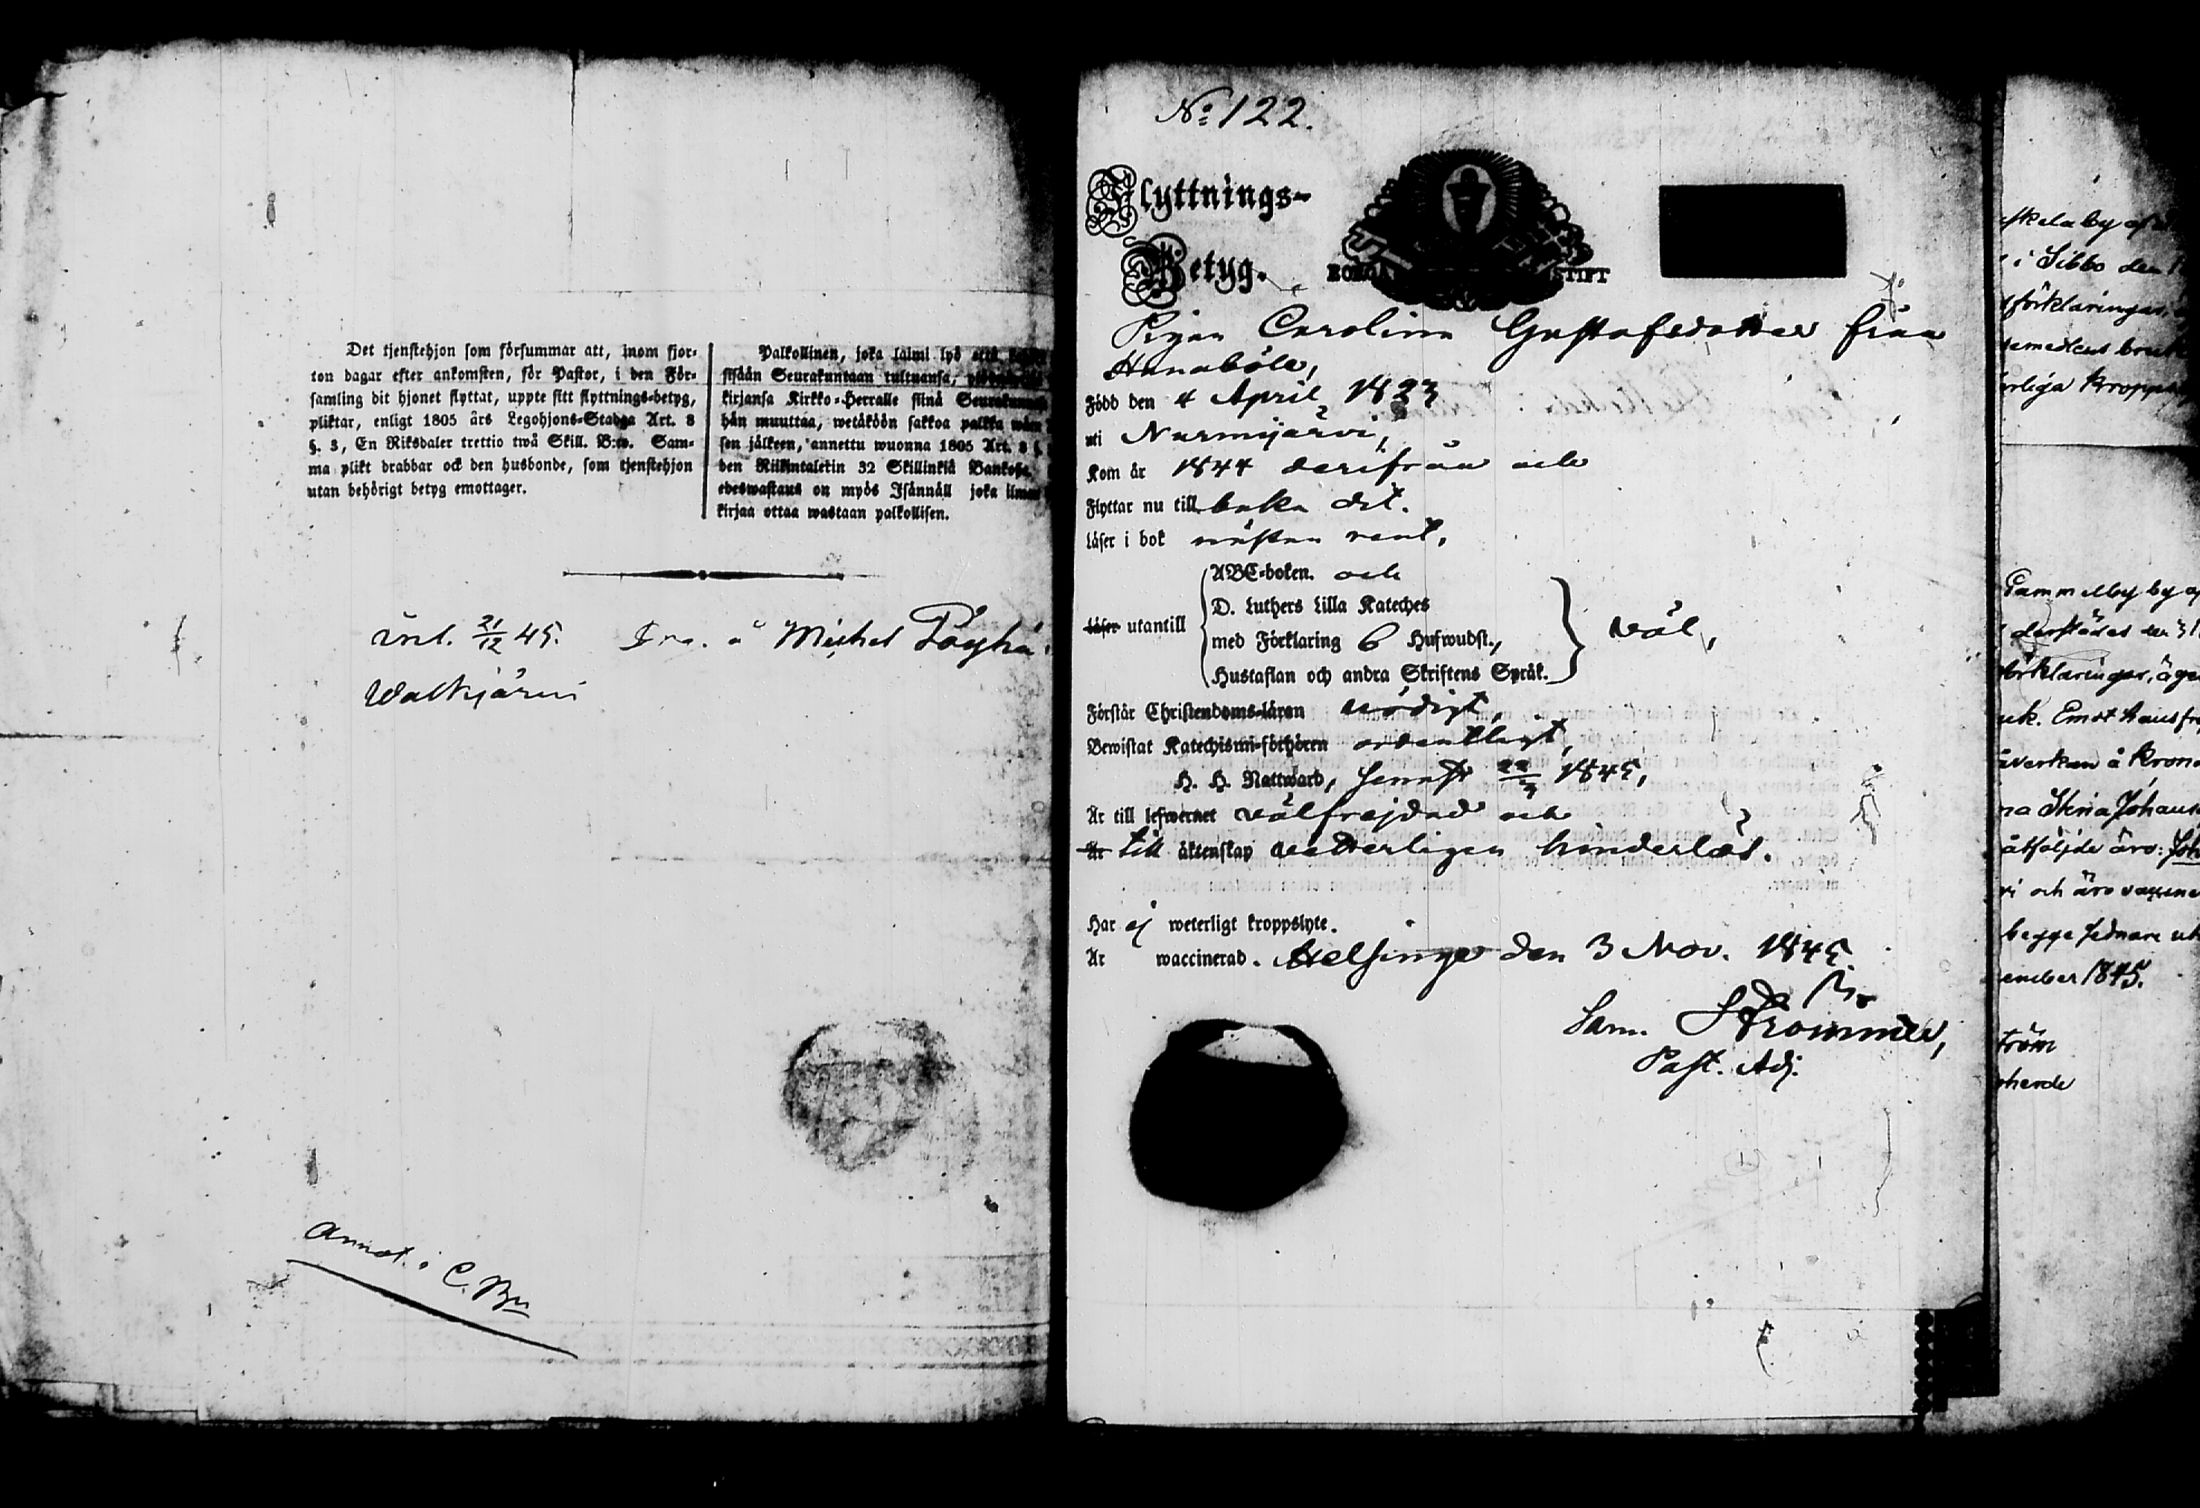 Det tjenstehjon som försummar att, inom fjor-
ton dagar efter ankomsten, för Pastor, i den För-
samling dit hjonet flyttat, uppte sitt flyttnings-betyg,
pliktar, enligt 1805 års Legohjons-Stadga Art. 8
§. 3, En Riksdaler trettio twå Skill. B:co. Sam-
ma plikt drabbar ock den husbonde, som tjenstehjon
utan behörigt betyg emottager.
Palkollinen, joka laimi lyö että
sisään Seurakuntaan tultuansa,
kirjansa Kirkko-Herralle siinä
hän muuttaa, wetäköön sakkoa palkka
sen jälkeen, annettu wuonna 1805 Art. 8 §.
den Riikintalekin 32 Skillinkiä Bankosa,
edeswastaus on myös Isännäll joka ilman
kirjaa ottaa wastaan palkollisen.
inl. 21/12 45. Ina. å Michel Pöyhä
Walkjärvi
Annot. i C. Bn
No 122.
Flyttnings-
Betyg.
STIFT
Pigan Carolina Gustafsdotter från
Hanaböle,
Född den 4 April 1823
uti Nurmijärvi,
Kom år 1844 derifrån och
Flyttar nu till baka dit.
Läser i bok nästan rent,
ABC-boken. och
D. Luthers Lilla Kateches
Läser utantill med Förklaring 6 Hufwudst., väl,
Hustaflan och andra Skriftens Språk.
Förstår Christendoms-läran nödigt,
Bewistat Katechismi-förhören ordentligt,
H. H. Nattward, senast 1845,
Är till lefwernet välfrejdad och
Är till äktenskap vetterligen hinderlös.
Har ej weterligt kroppslyte.
Är waccinerad. Helsinge den 3 Nov. 1845.
Sam. Strömmer,
Past. Adj.
i Sibbo den
förklaringar,
kropps
Gammelby by af
derstädes den 31
förklaringar, äger
uk. Emot hans fre
åverkan å Krono
na Stina Johans
åtföljde äro: Joh
vi och äro vaccine
begge sednare ut
ember 1845.
tröm
oherde